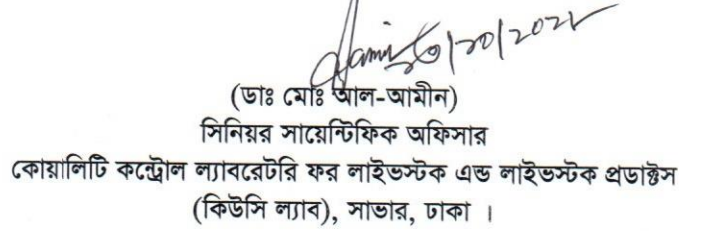 (ডাঃ মোঃ আল-আমীন)
সিনিয়র সায়েন্টিফিক অফিসার
কোয়ালিটি কন্ট্রোল ল্যাবরেটরি ফর লাইভস্টক এন্ড লাইভস্টক প্রডাক্টস
(কিউসি ল্যাব), সাভার, ঢাকা ।